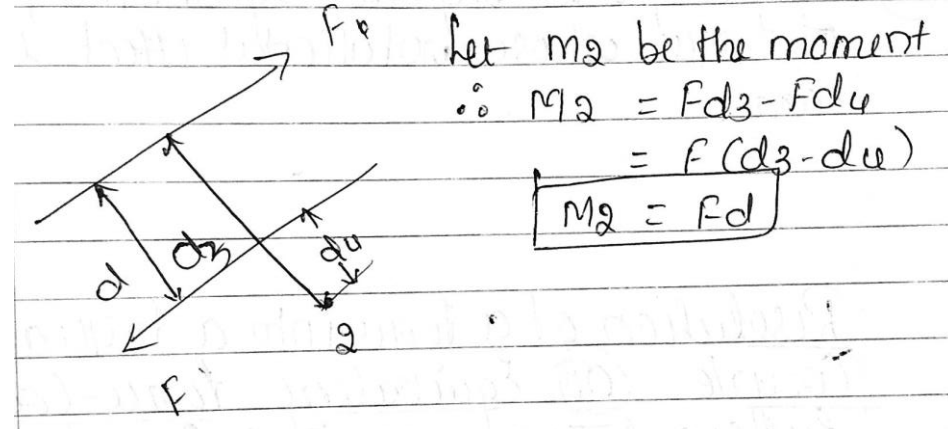 F
Let M2 be the moment
∴ M2 = Fd3 - Fd4
= F(d3-d4)
M2 = Fd
d
d3
d4
2
F